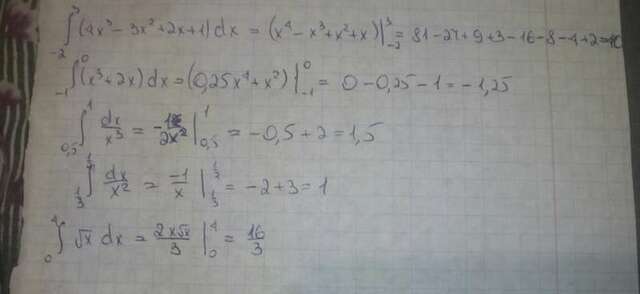 ∫₋₂³ (4x³ − 3x² + 2x + 1) dx = (x⁴ − x³ + x² + x) |₋₂³ = 81 − 27 + 9 + 3 − 16 − 8 − 4 + 2 = 40
∫₋₁⁰ (x³ + 2x) dx = (0,25x⁴ + x²) |₋₁⁰ = 0 − 0,25 − 1 = −1,25
∫₀,₅¹ dx/x³ = −1/2x² |₀,₅¹ = −0,5 + 2 = 1,5
∫_{1/3}^{1/2} dx/x² = −1/x |_{1/3}^{1/2} = −2 + 3 = 1
∫₀⁴ √x dx = 2x√x/3 |₀⁴ = 16/3